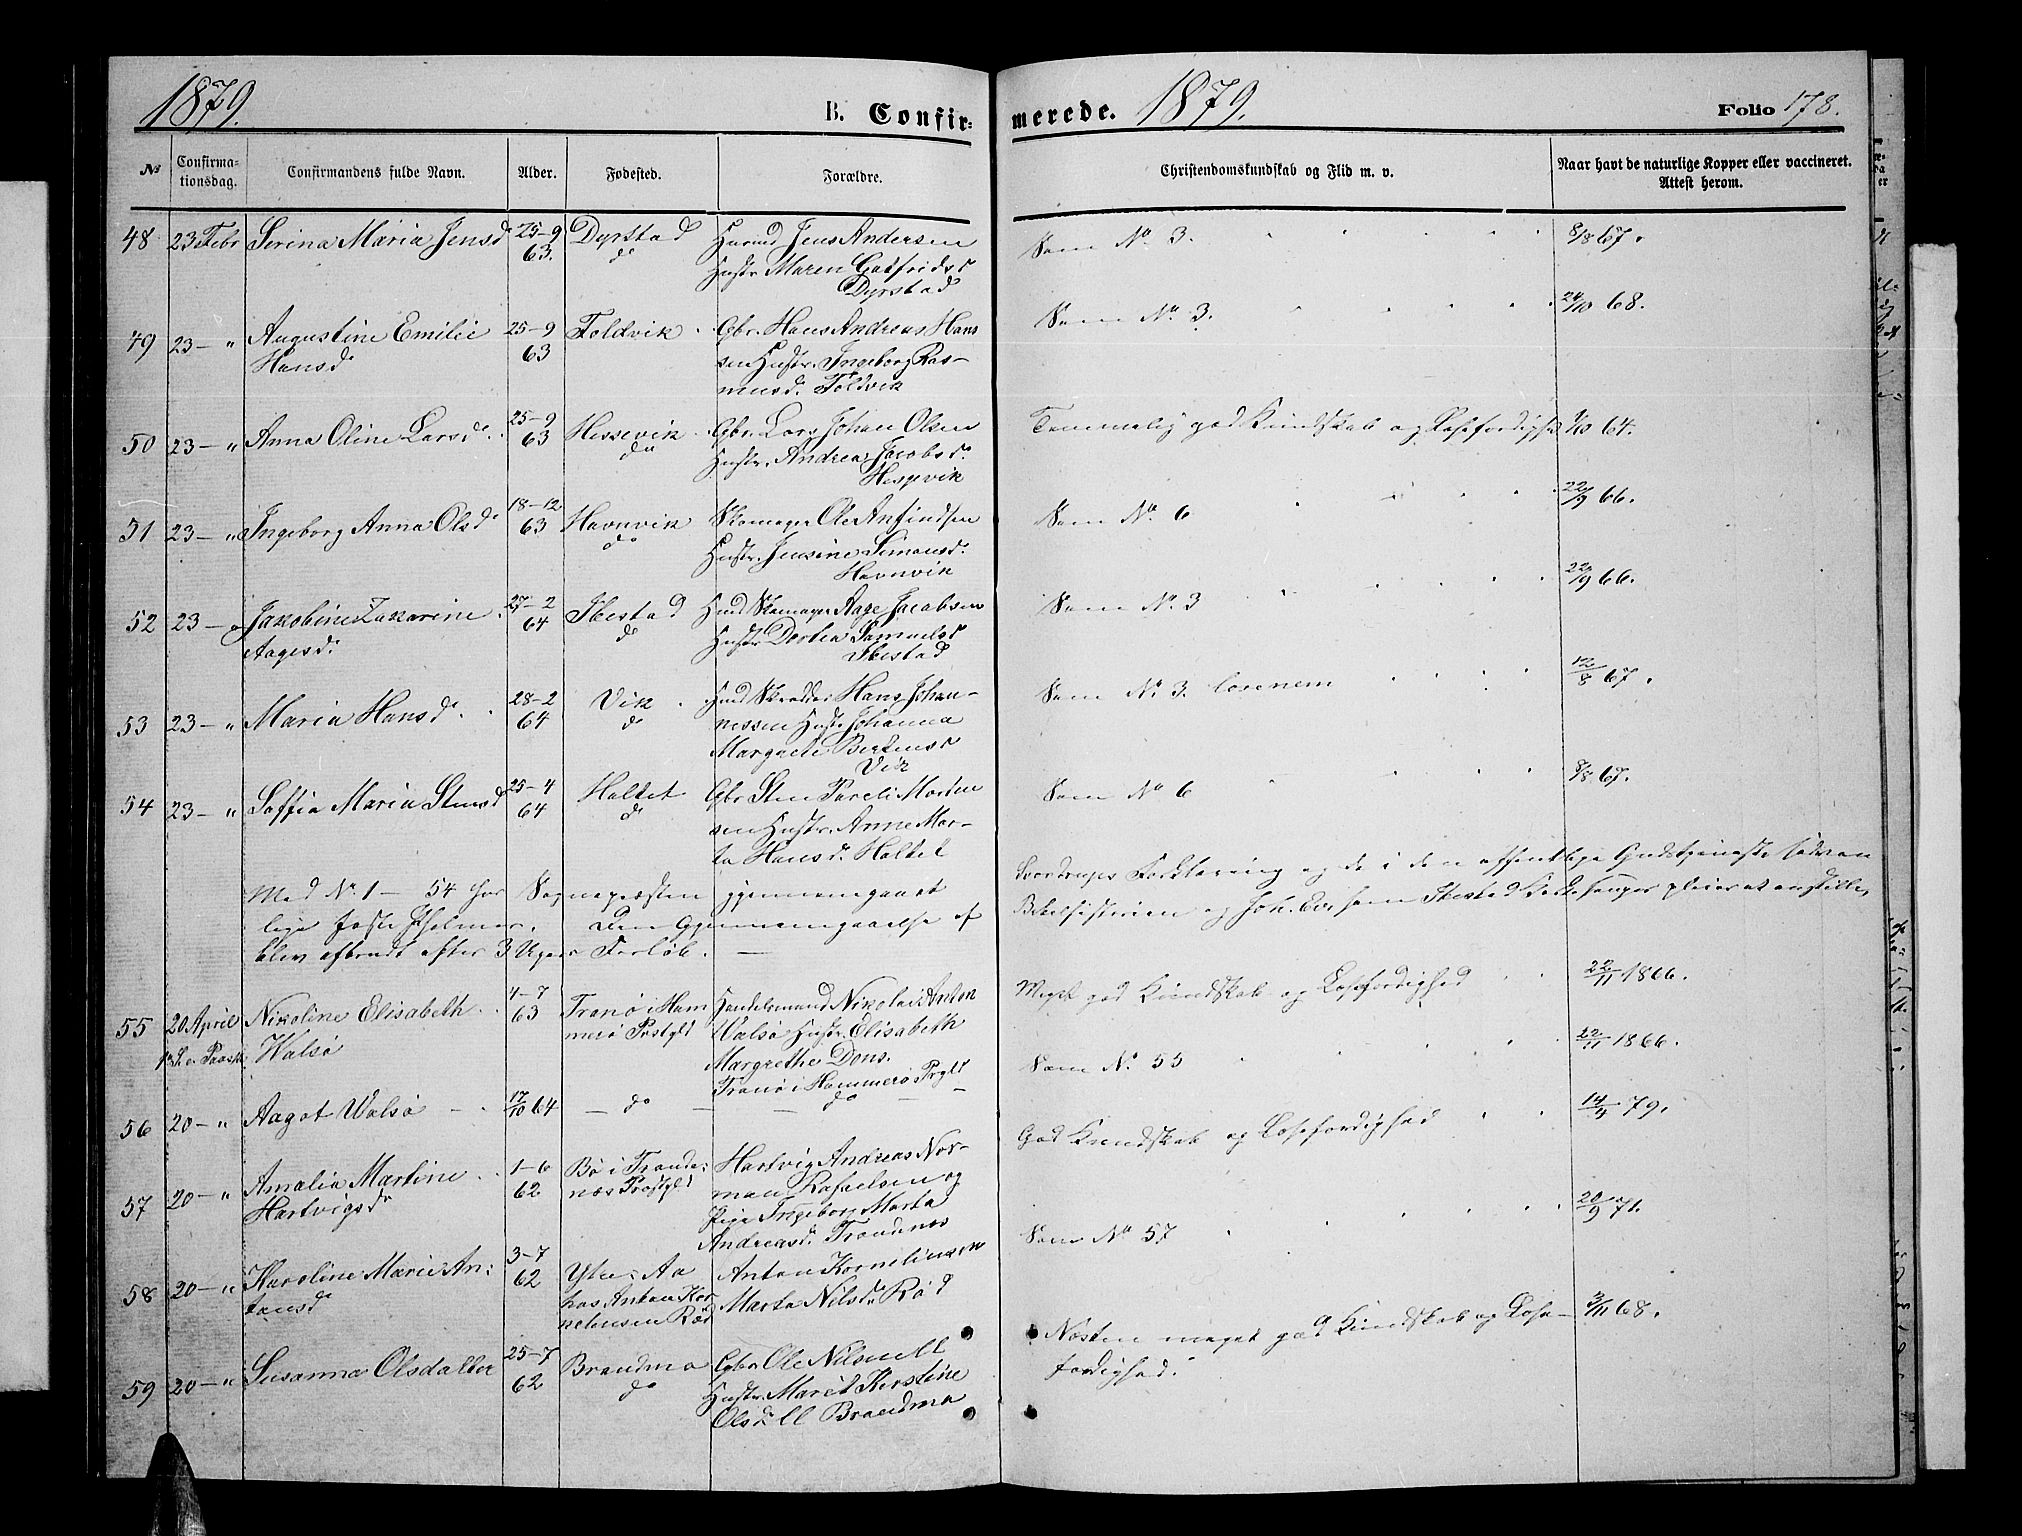 1879.
B. Confir-
merede. 1879.
Folio 178.
No
Confirma-
tionsdag.
Confirmandens fulde Navn.
Alder.
Fødested.
Forældre.
Christendomskundskab og Flid m. v.
Naar havt de naturlige Kopper eller vaccineret.
Attest herom.
48 23 Febr Serina Maria Jensd 25-9 63. Dyrstad do
Husmd Jens Andersen
Hustr Maren Gotfridsd
Dyrstad
Som No 3.
8/8 67.
49 23 — " Augustine Emilie
Hansd 25-9 63 Foldvik
Gbr. Hans Andreas Hans
sen Hustr. Ingeborg Ras-
musd. Foldvik
Som No 3.
24/10 68.
50 23 — " Anna Oline Larsd. 25-9 63 Hessevik do
Gbr. Lars Johan Olsen
Hustr. Andrea Jacobsd.
Hessevik
Temmelig god Kundskab og
/10 64.
51 23 — " Ingeborg Anna Olsd 18-12 63 Havnvik do
Skomager Ole Anfindsen
Hustr. Jensine Simonsd.
Havnvik
Som No. 6
22/9 66.
52 23 — " Jakobine Zakarine
Aagesd. 27-2 64 Ibestad do
Skomager Aage Jacobsen
Hustr Dortea Samuelsd
Ibestad
Som No. 3
22/9 66.
53 23 — " Maria Hansd. 28-2 64 Vik do
Skrædder Hans Johan-
nessen Hustr Johanna
Margrete Bertensd
Vik
Som No. 3.
12/8 67.
54 23 — " Soffia Maria Stensd 25-4 64 Haltet do
Gbr Sten Pareli Morten
sen Hustr. Anne Mar-
ta Hansd. Haltet
Som No 6
8/8 67.
Med No. 1 — 54 har Sognepræsten gjennemgaaet
Sverdrups Forklaring og de i den offentlige Gudstjeneste
Bibelhistorien og
Den Gjennemgaaelse af
blev afbrudt efter 3 Ugers Forløb.
55 20 April Nikoline Elisabeth
Walsø 4-7 63 Tranø i Ham
merø Præstgld
Handelsmand Nikolai Anton
Walsø Hustr. Elisabeth
Margrethe Dons.
Tranø i Hammerø Prgld
Meget god Kundskab og
22/11 1866.
56 20 — " Aagot Walsø 17/10 64 — do — — do —
Som No. 55
22/11 1866.
57 20 — " Amalia Martine
Hartvigsd 1-6 62 Bø i Tronde-
næs Præstgld
Hartvig Andreas Nor-
man Rafaelsen og
Pige Ingeborg Marta
Andreasd. Trondenæs
God Kundskab og
14/4 79.
58 20 — " Karoline Marie An-
tonsd 3-7 62 Ytre-Aa
hos Anton Kor
neliusen Rød
Anton Korneliusen
Marta Nilsd. Rød
Som No 57
20/9 71.
59 20 — " Susanna Olsdatter 25-7 62 Brandmo do
Gbr Ole Nilsen
Hustr. Marit Kirstine
Olsd. Brandmo
Næsten meget god Kundskab og
3/11 68.